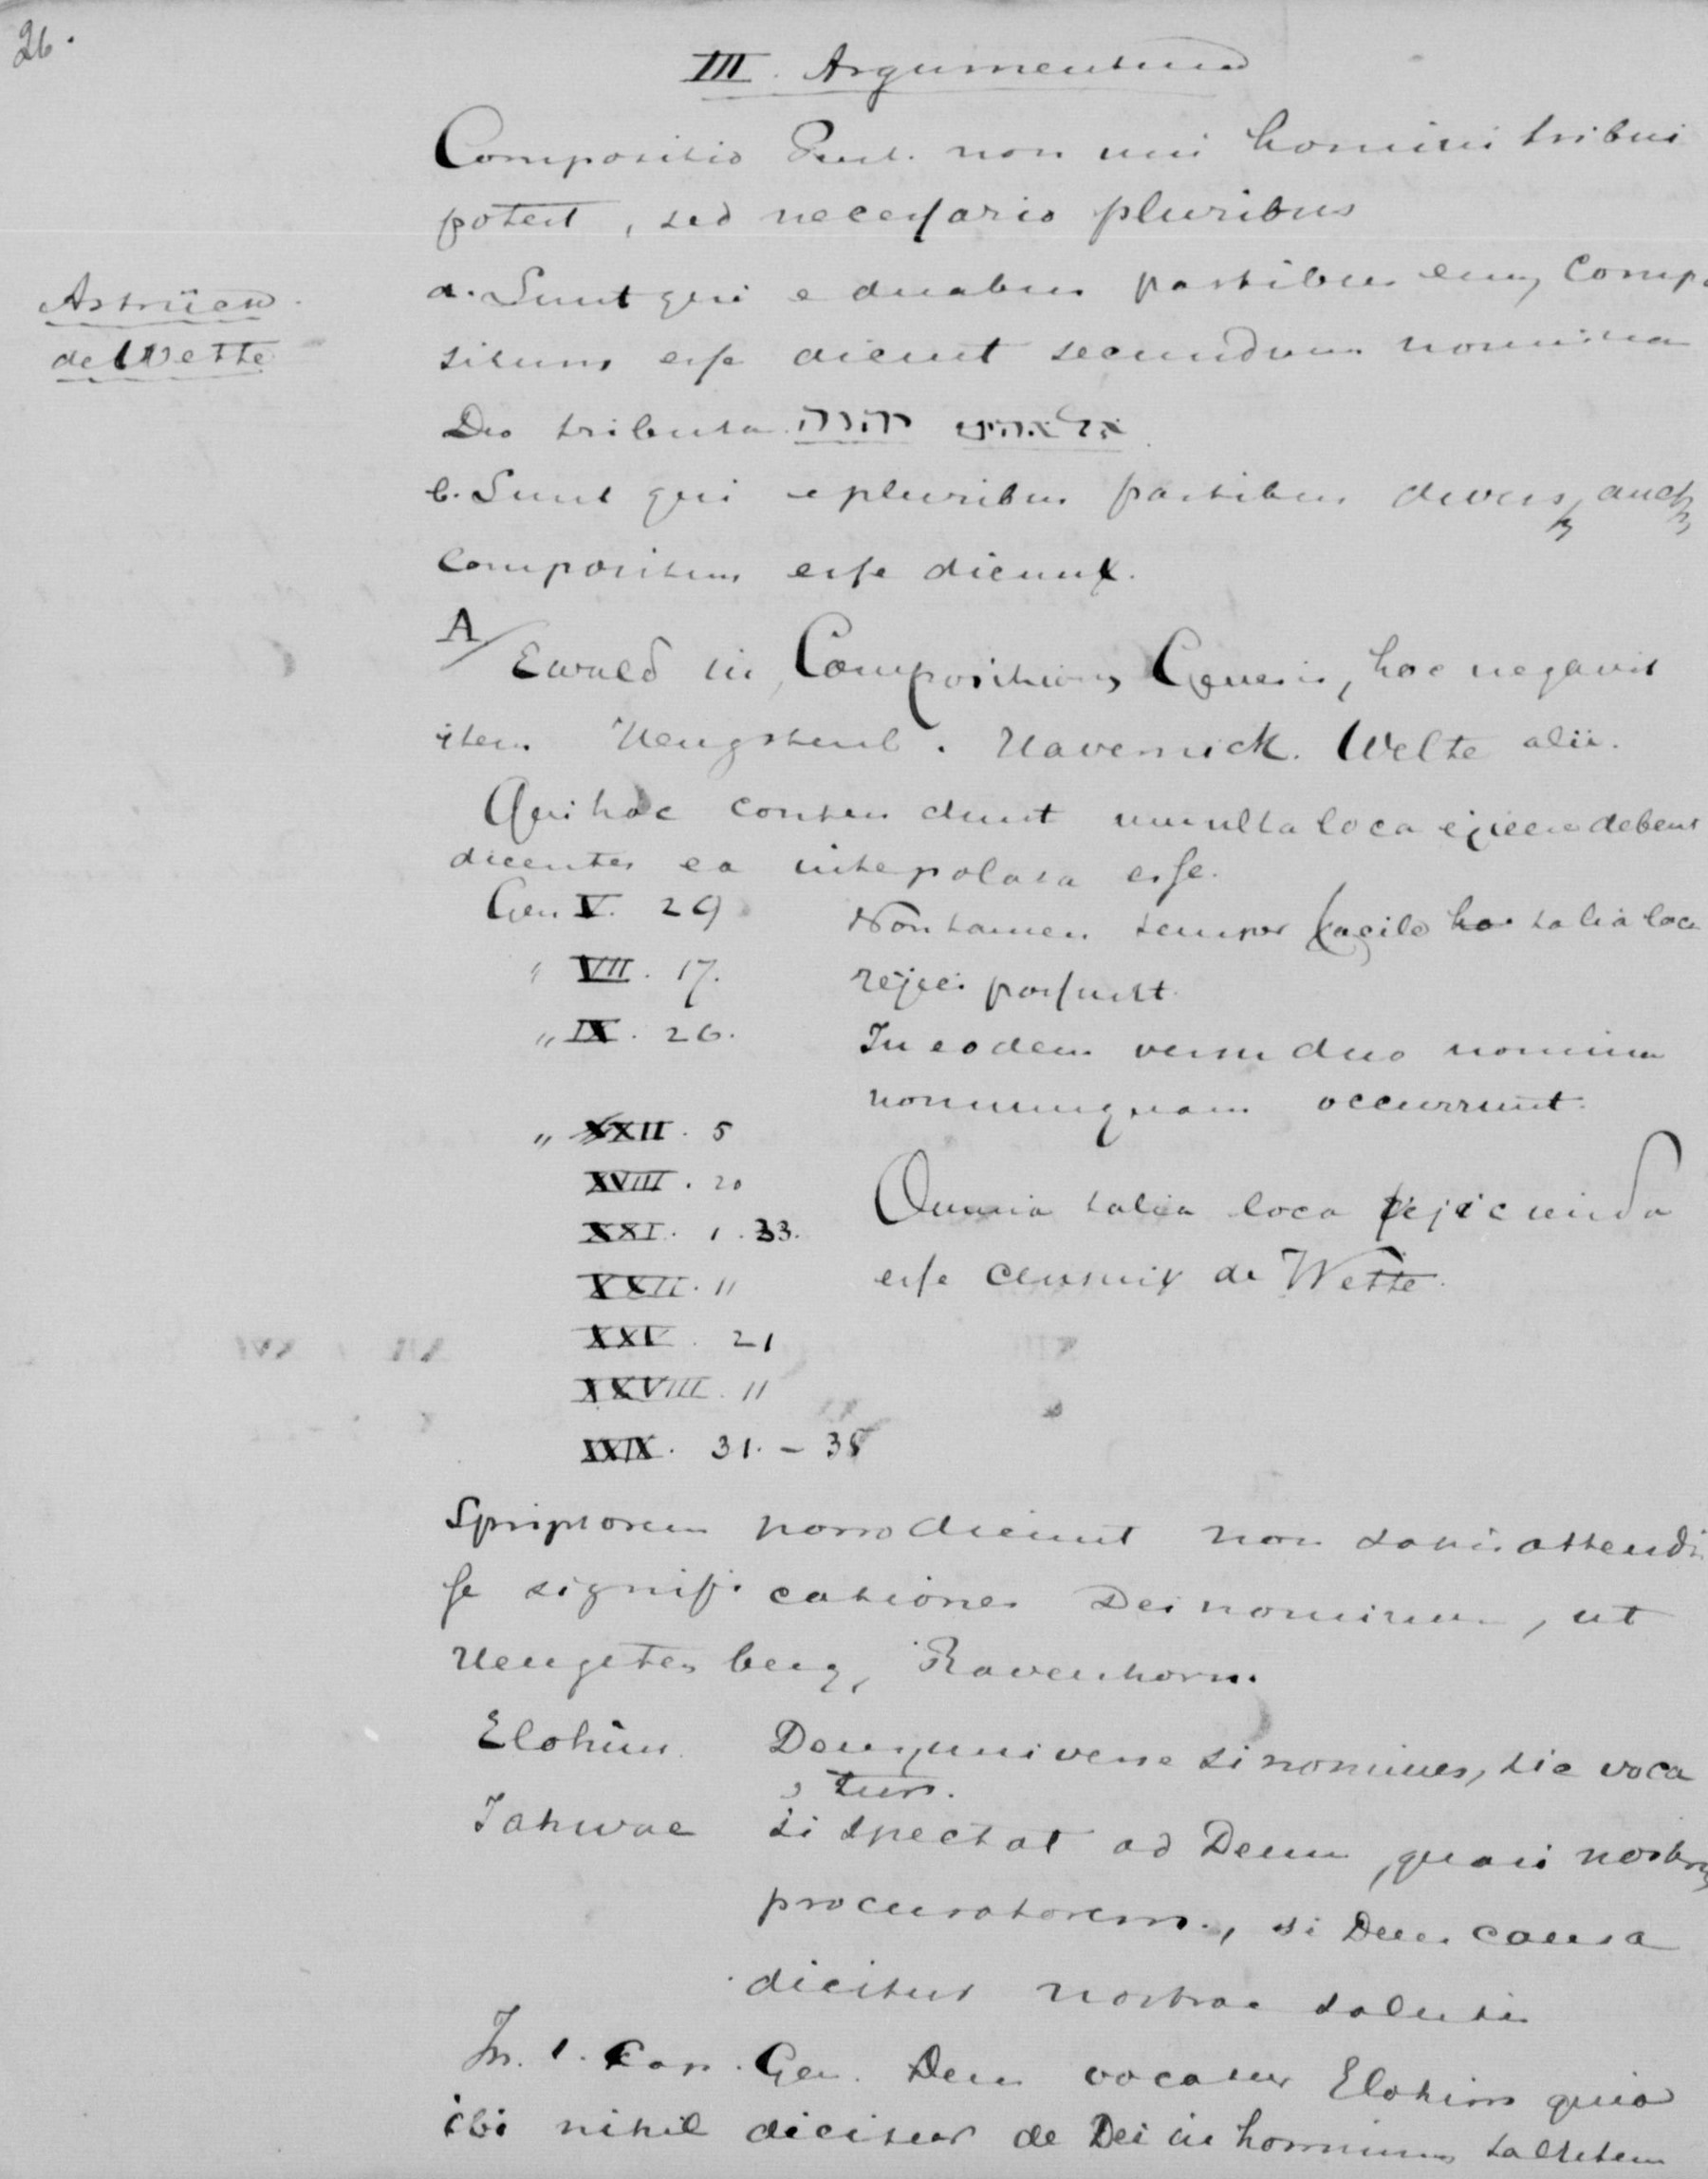 26.
III. Argumentum
Compositio Pent. non uni homini tribui
potest, sed necessario pluribus
Astrüen
de Wette
a. Sunt qui e duabus partibus eum compo
situm esse dicunt secundum nomina
Deo tributa יהוה אלהים
b. Sunt qui e pluribus partibus divers auct
compositum esse dicunt.
A/ Ewald in Composition Genesis, hoc negavit
item Hengstenb. Havernick. Welte alii.
Qui hoc contendunt multa loca ejicere debent
dicentes ea intepolata esse.
Gen V. 29 Non tamen semper facile talia loca
" VII. 17. rejici possunt.
" IX. 26. In eodem versu duo nomina
nonnunquam occurrunt.
" XXII. 5
XVIII. 20 Omnia talia loca rejicienda
XXI. 1. 33.
XXII. 11 esse censuit de Wette.
XXV. 21
XXVIII. 11
XXIX. 31. - 35
Spriptorem porro dicunt non satis attendis
se significationes Dei nominum, ut
Hengstenberg,
Elohim Deum universe si nomines, sic voca
tur.
Jahwae si spectat ad Deum, quasi nostrum
procuratorem, si Deus causa
dicitur nostrae salutis
In 1. Cap. Gen. Deus vocatur Elohim quia
ibi nihil dicitur de Dei in hominum salutem